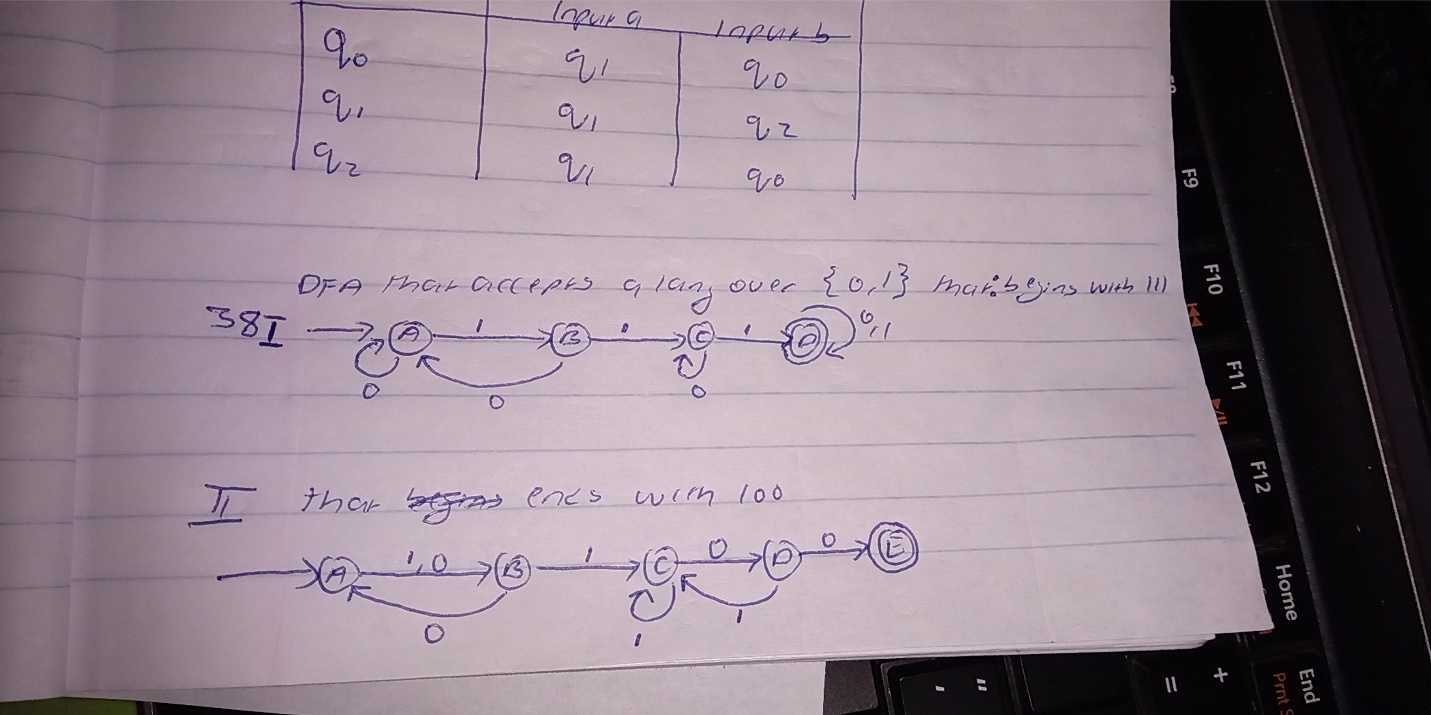 Input a Input b
q0 q1 q0
q1 q1 q2
q2 q1 q0
DFA that accepts a lang over {0,1} that begins with 111
38I A 1 B 1 C 1 D 0,1
0 0 0
II that begins ends with 100
A 1,0 B 1 C 0 D 0 E
0 1 1
F9
F10
F11
F12
Home
End
Prnt S
+
=